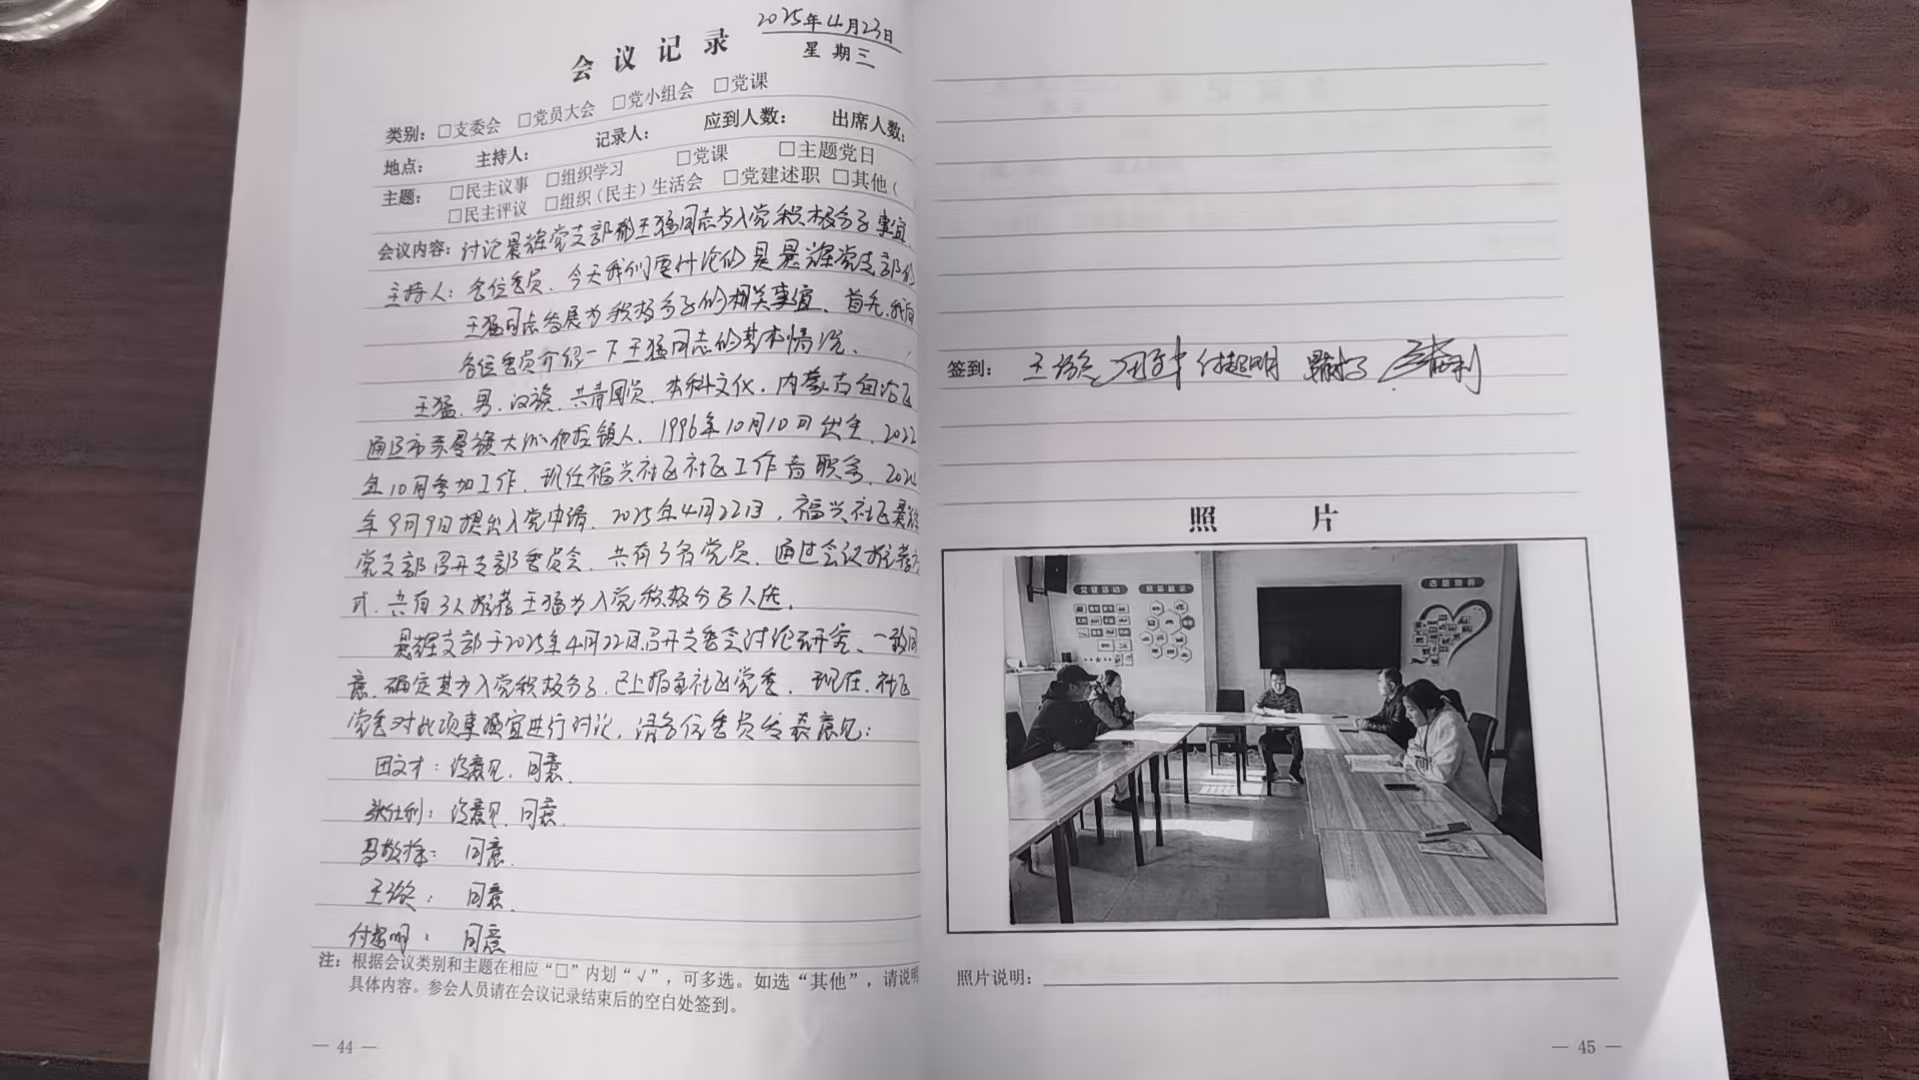 2025年4月23日
会议记录
星期三
类别: □支委会 □党员大会 □党小组会 □党课
地点: 主持人: 记录人: 应到人数: 出席人数:
主题: □民主议事 □组织学习 □党课 □主题党日
□民主评议 □组织(民主)生活会 □党建述职 □其他(
会议内容: 讨论晨辉党支部 王猛同志为入党积极分子事宜
主持人: 各位委员,今天我们要讨论的是晨辉党支部的
王猛同志发展为积极分子的相关事宜,首先,我向
各位委员介绍一下王猛同志的基本情况。
王猛,男,汉族,共青团员,本科文化,内蒙古自治区
通辽市奈曼旗大沁他拉镇人,1996年10月10日出生,2022
年10月参加工作,现任福兴社区社区工作者职务,
年9月9日提出入党申请,2025年4月22日,福兴社区晨辉
党支部召开支部委员会,共有3名党员,通过会议推荐方
式,共有3人推荐王猛为入党积极分子人选。
晨辉支部于2025年4月22日召开支委会讨论研究,一致同
意,确定其为入党积极分子,已上报至社区党委,现在,社区
党委对此项事宜进行讨论,请各位委员发表意见:
田文才: 没意见,同意.
张仕利: 没意见,同意.
马敬 : 同意.
王 : 同意.
付超明: 同意
注: 根据会议类别和主题在相应“□”内划“√”,可多选。如选“其他”,请说明
具体内容。参会人员请在会议记录结束后的空白处签到。
— 44 —
签到: 付超明
照片
文娱活动 风采展示
志愿服务
照片说明:
— 45 —